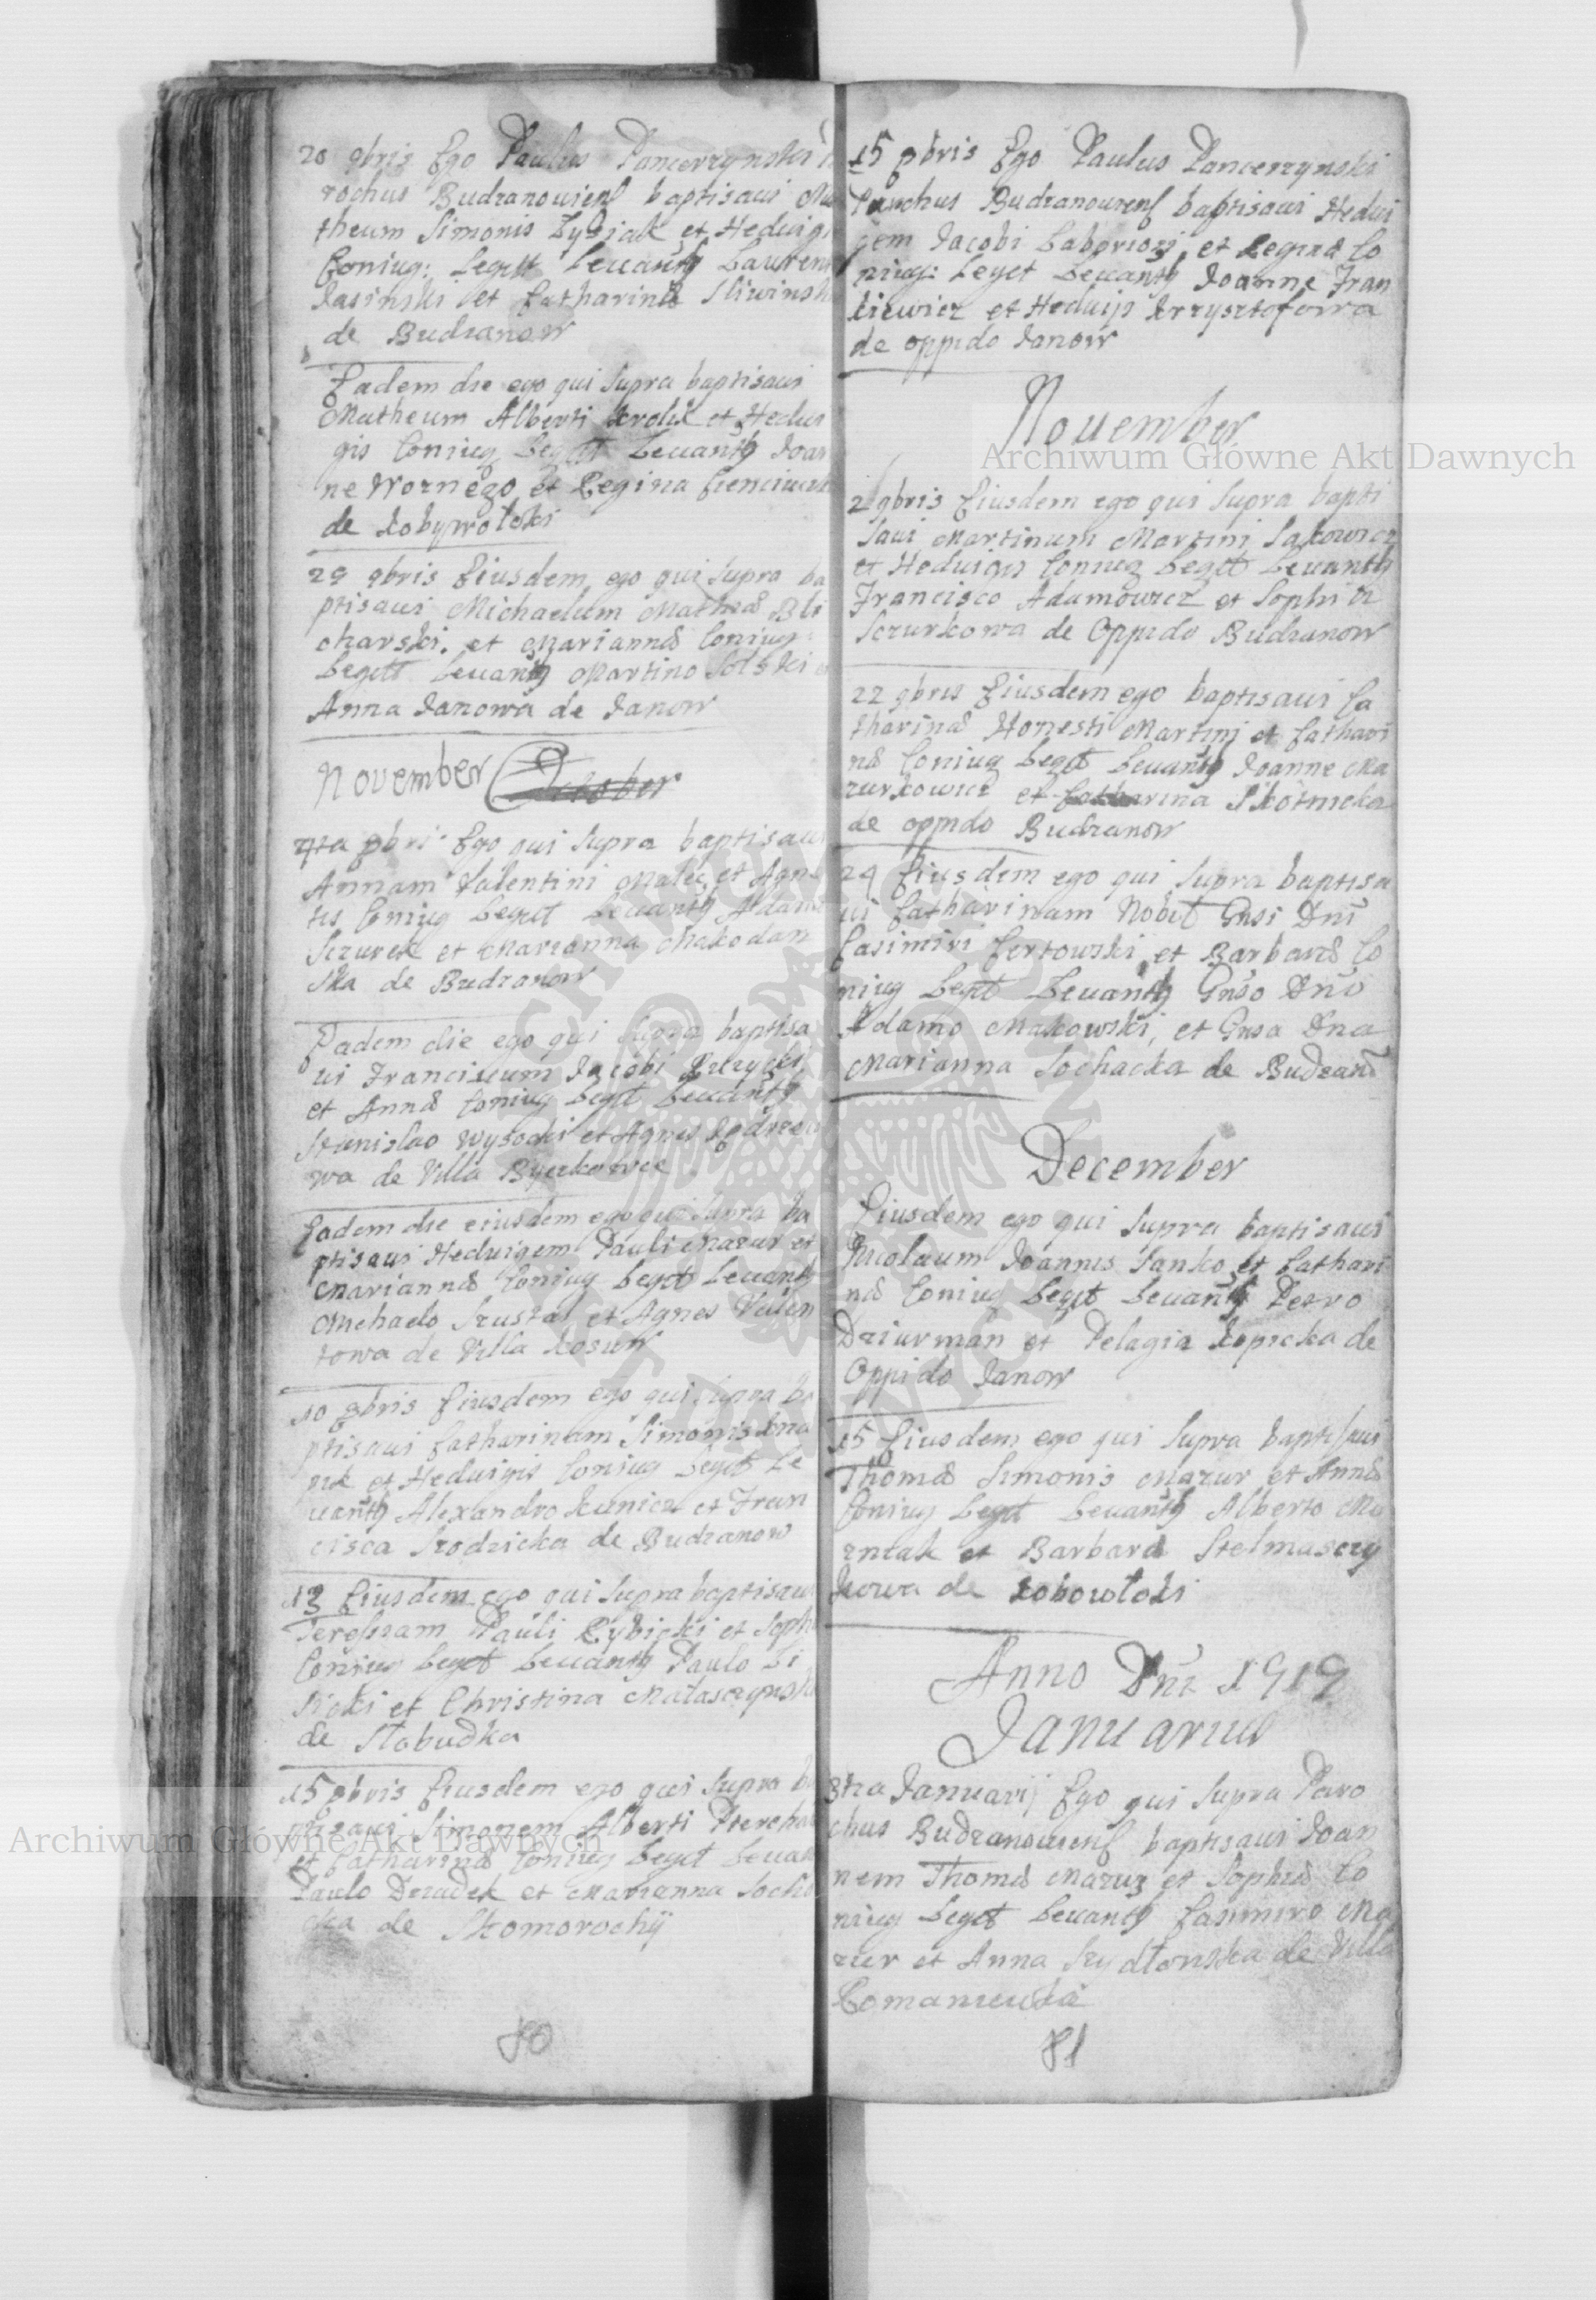 20 9bris Ego Paulus Pancerzynski
rochus Budzanouiens baptisaui
theum Simonis et Heduigis
Coniug: Legitt Leuantb Lauren
Jasinski et Catharina Sliwinsk
de Budzanow
Eadem die ego qui supra baptisaui
Matheum Alberti Krolik et Hedui
gis Coniug Legitt Leuantb Joan
ne Wornego et Regina
de Kobywoloki
29 9bris Eiusdem ego qui supra ba
ptisaui Michaelum Mathiae Bli
charski et Mariannae Coniug
Legitt Leuantb Martino Solski
Anna Janowa de Janow
November October
4ta 9bris Ego qui supra baptisaui
Annam Valentini Malec et Agne
tis Coniug Legitt Leuantb Adamo
Szczurek et Marianna Makodan
ska de Budzanow
Eadem die ego qui supra baptisa
ui Franciscum Jacobi
et Annae Coniug Legtt Leuantb
Stanislao Wysocki et Agnes
wa de Villa Byczkowce
Eadem die eiusdem ego qui supra ba
ptisaui Heduigem Pauli Mazur et
Mariannae Coniug Legtt Leuantb
Michaelo Szustal et Agnes Valen
towa de Villa Kosuw
10 9bris Eiusdem ego qui supra ba
ptisaui Catharinam Simonis
et Heduigis Coniug Legtt Le
uantb Alexandro Kunicz et Fran
cisca Srodzicka de Budzanow
13 Eiusdem ego qui supra baptisaui
Teressam Pauli Rybicki et Soph
Coniug Legtt Leuantb Paulo Li
sicki et Christina Malasczynsk
de Slobudka
15 9bris Eiusdem ego qui supra b
ptisaui Simonem Alberti
et Catharinae Coniug Legtt Leuan
Paulo Dziadek et Marianna Socha
cka de Skomorochij
80
15 9bris Ego Paulus Pancerzynski
Parochus Budzanouiens baptisaui Hedui
gem Jacobi et Regina Co
niug: Legtt Leuantb Joanne Fran
kiewicz et Heduigis Krzysztofowa
de oppido Janow
Nouember
2 9bris Eiusdem ego qui supra bapti
saui Martinum Martini Sakowicz
et Heduigis Coniug Legtt Leuantb
Francisco Adamowicz et Sophia
Sczurkowa de Oppido Budzanow
22 9bris Eiusdem ego baptisaui Ca
tharinae Honesti Martini et Cathari
nae Coniug Legtt Leuantb Joanne Ma
zurkowicz et Catharina Skotnicka
de oppido Budzanow
24 Eiusdem ego qui supra baptisa
ui Catharinam Nobil Gnsi Dni
Casimiri Certowski et Barbarae Co
niug Legtt Leuantb Gnso Dno
Adamo Makowski, et Gnsa Dna
Marianna Sochacka de Budzano
December
Eiusdem ego qui supra baptisaui
Nicolaum Joannis Janko et Cathari
nae Coniug Legtt Leuantb Petro
Dziurman et Pelagia Kopicka de
Oppido Janow
15 Eiusdem ego qui supra baptisaui
Thomae Simonis Mazur et Annae
Coniug Legtt Leuantb Alberto Mo
zniak et Barbara Stelmasczy
kowa de Kobowloki
Anno Dni 1919
Januarius
8tza Januarij Ego qui supra Paro
chus Budzanouiens baptisaui Joan
nem Thomae Mazur et Sophiae Co
niug Legtt Leuantb Casimiro Ma
zur et Anna Szydlowska de Villa
Romanuwka
81
Archiwum Główne Akt Dawnych
Archiwum Główne Akt Dawnych
ARCHIWUM GŁÓWNE AKT DAWNYCH